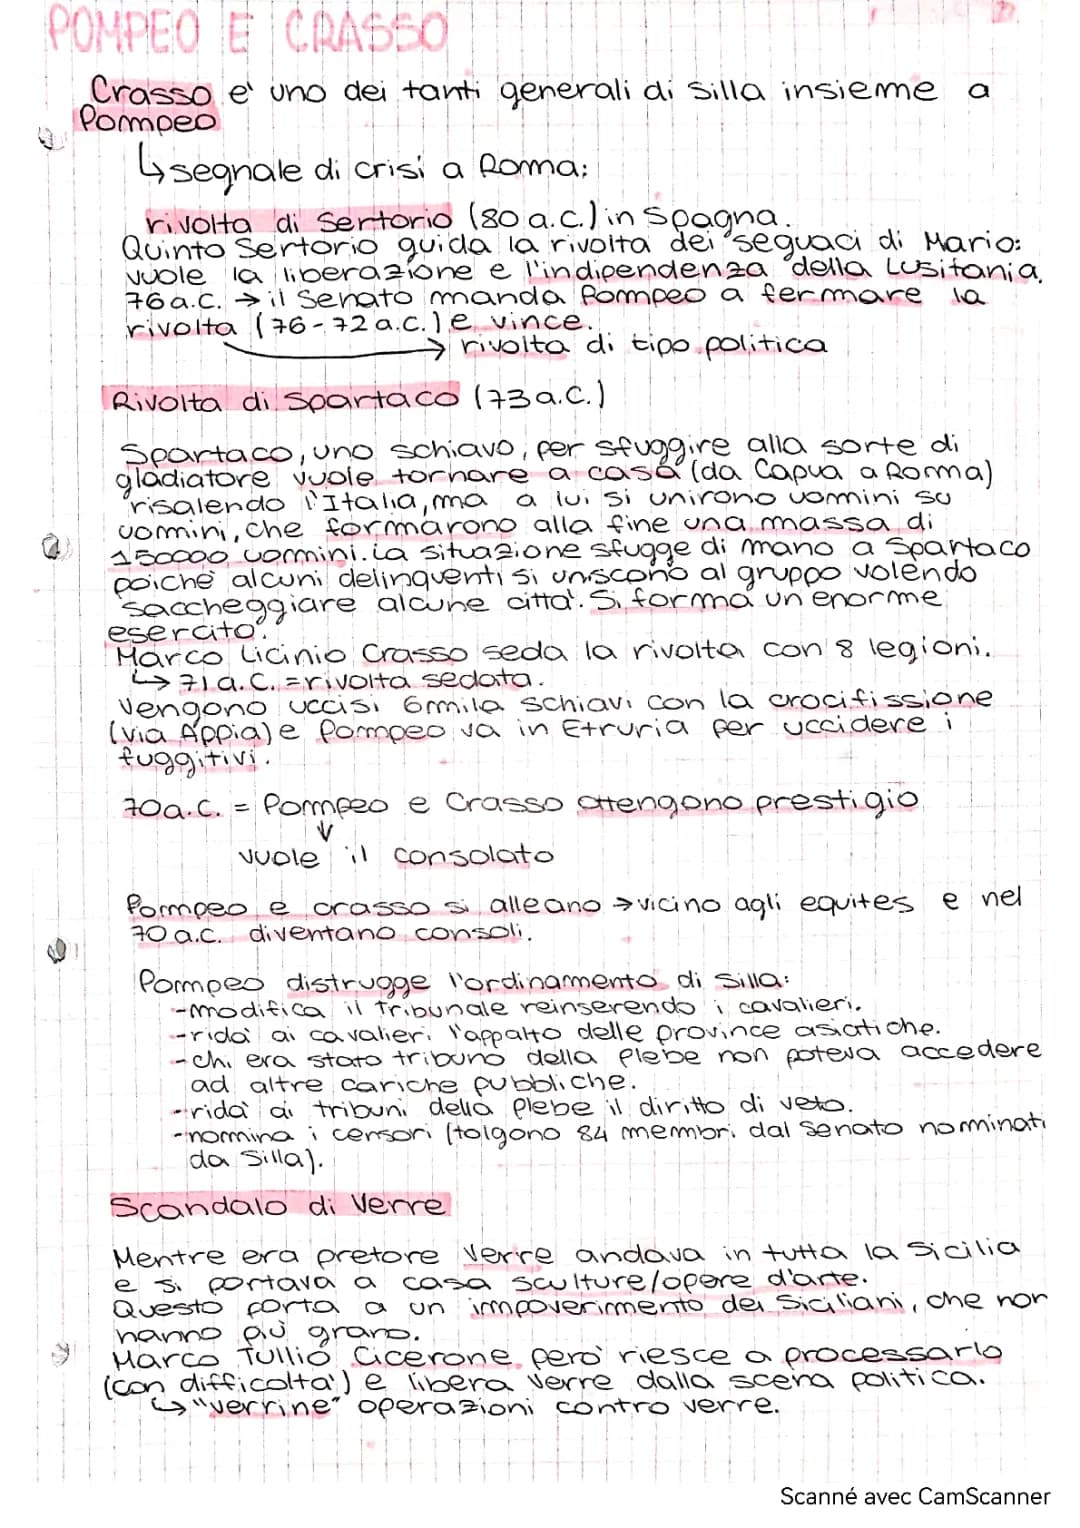 POMPEO E CRASSO
Crasso e' uno dei tanti generali di silla insieme a
Pompeo
↳segnale di crisi a Roma:
rivolta di Sertorio (80 a.c.) in Spagna.
Quinto Sertorio guida la rivolta dei seguaci di Mario:
vuole la liberazione e l'indipendenza della Lusitania.
76 a.c. → il Senato manda Pompeo a fermare la
rivolta (76-72 a.c.) e vince.
→ rivolta di tipo politica
Rivolta di Spartaco (73 a.c.)
Spartaco, uno schiavo, per sfuggire alla sorte di
gladiatore vuole tornare a casa (da Capua a Roma)
risalendo l'Italia, ma a lui si unirono uomini su
uomini, che formarono alla fine una massa di
150000 uomini. La situazione sfugge di mano a Spartaco
poiche' alcuni delinquenti si uniscono al gruppo volendo
saccheggiare alcune citta'. Si forma un enorme
esercito.
Marco Licinio Crasso seda la rivolta con 8 legioni.
↳ 71 a.c. = rivolta sedata.
Vengono uccisi 6mila schiavi con la crocifissione
(via Appia) e Pompeo va in Etruria per uccidere i
fuggitivi.
70 a.c. = Pompeo e Crasso ottengono prestigio
↓
vuole il consolato
Pompeo e crasso si alleano → vicino agli equites e nel
70 a.c. diventano consoli.
Pompeo distrugge l'ordinamento di Silla:
-modifica il tribunale reinserendo i cavalieri.
-rida' ai cavalieri l'appalto delle province asiatiche.
-chi era stato tribuno della plebe non poteva accedere
ad altre cariche pubbliche.
-rida' ai tribuni della plebe il diritto di veto.
-nomina i censori (tolgono 84 membri dal senato nominati
da Silla).
Scandalo di Verre
Mentre era pretore Verre andava in tutta la Sicilia
e si portava a casa sculture/opere d'arte.
Questo porta a un impoverimento dei Siciliani, che non
hanno piu' grano.
Marco Tullio Cicerone pero' riesce a processarlo
(con difficolta') e libera Verre dalla scena politica.
↳ "verrine" operazioni contro verre.
Scanné avec CamScanner